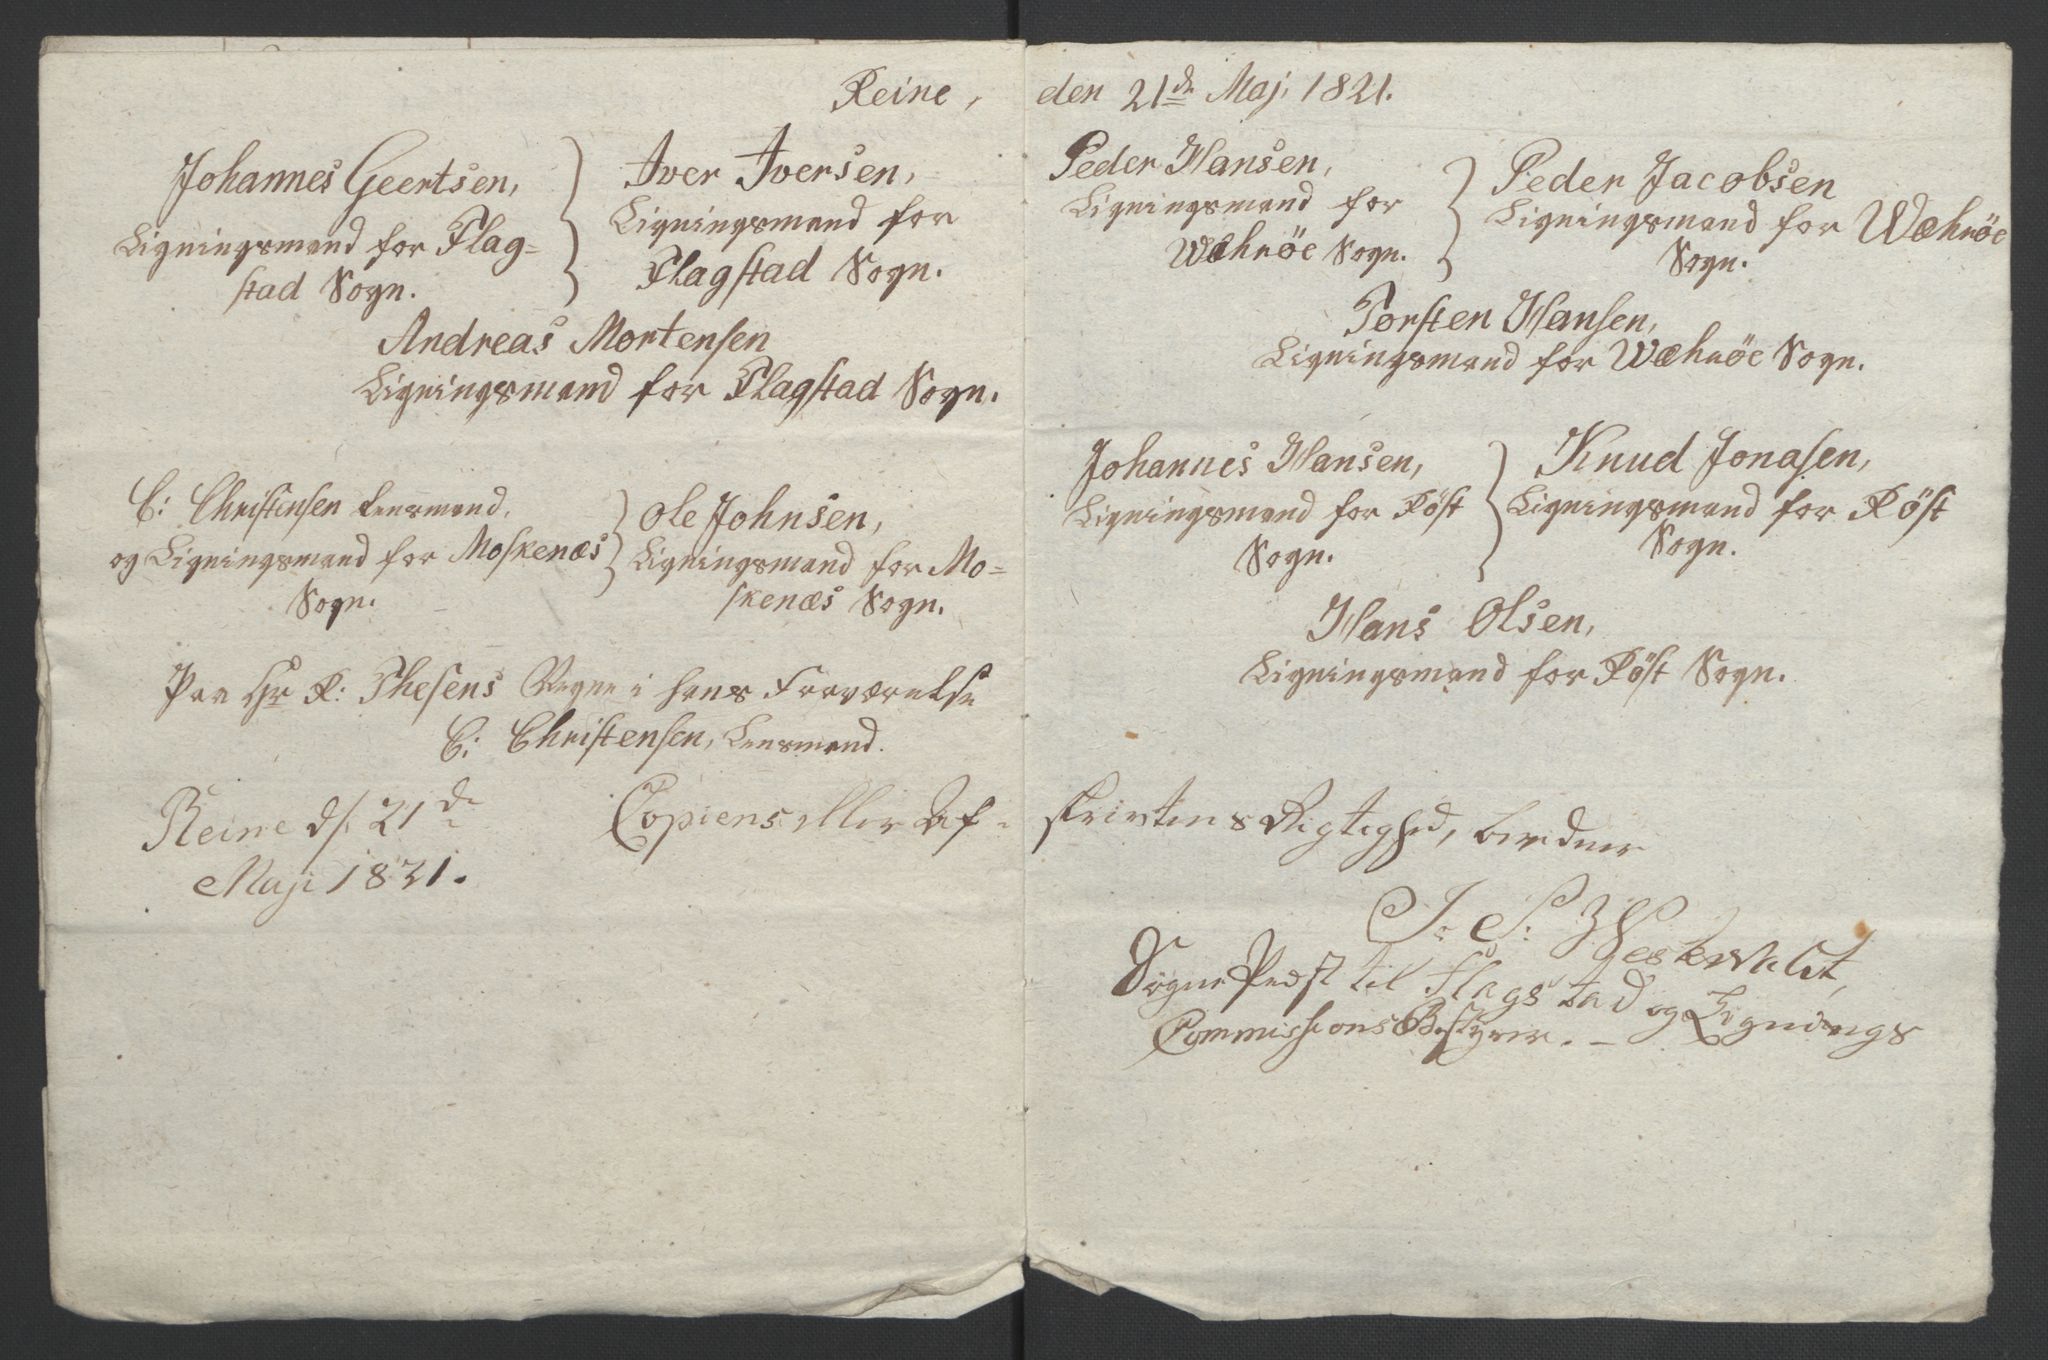 Reine, den 21de Maji 1821.
Johannes Geertsen,
Ligningsmand for Flag=
stad Sogn.
Iver Iversen,
Ligningsmand for
Flagstad Sogn.
Andreas Mortensen
Ligningsmand for Flagstad Sogn.
C: Christensen Lensmand,
og Ligningsmand for Moskenæs
Sogn.
Ole Johnsen,
Ligningsmand for Mo=
skenæs Sogn.
Paa Hr R: Thesens Vegne i hans Fraværelse
C: Christensen, Lensmand.
Peder Hansen,
Ligningsmand for
Wæhröe Sogn.
Peder Jacobsen
Ligningsmand for Wæhröe
Sogn.
Torsten Hansen,
Ligningsmand for Wæhröe Sogn.
Johannes Hansen,
Ligningsmand for Röst
Sogn.
Knud Jonasen,
Ligningsmand for Röst
Sogn.
Hans Olsen,
Ligningsmand for Röst Sogn.
Copiens eller Af= skrivtens Rigtighed, bevidner
Reine d/. 21de
Maji 1821.
Sogne Præst til Flagstad og Lignings
Commissions Bestyrer. –